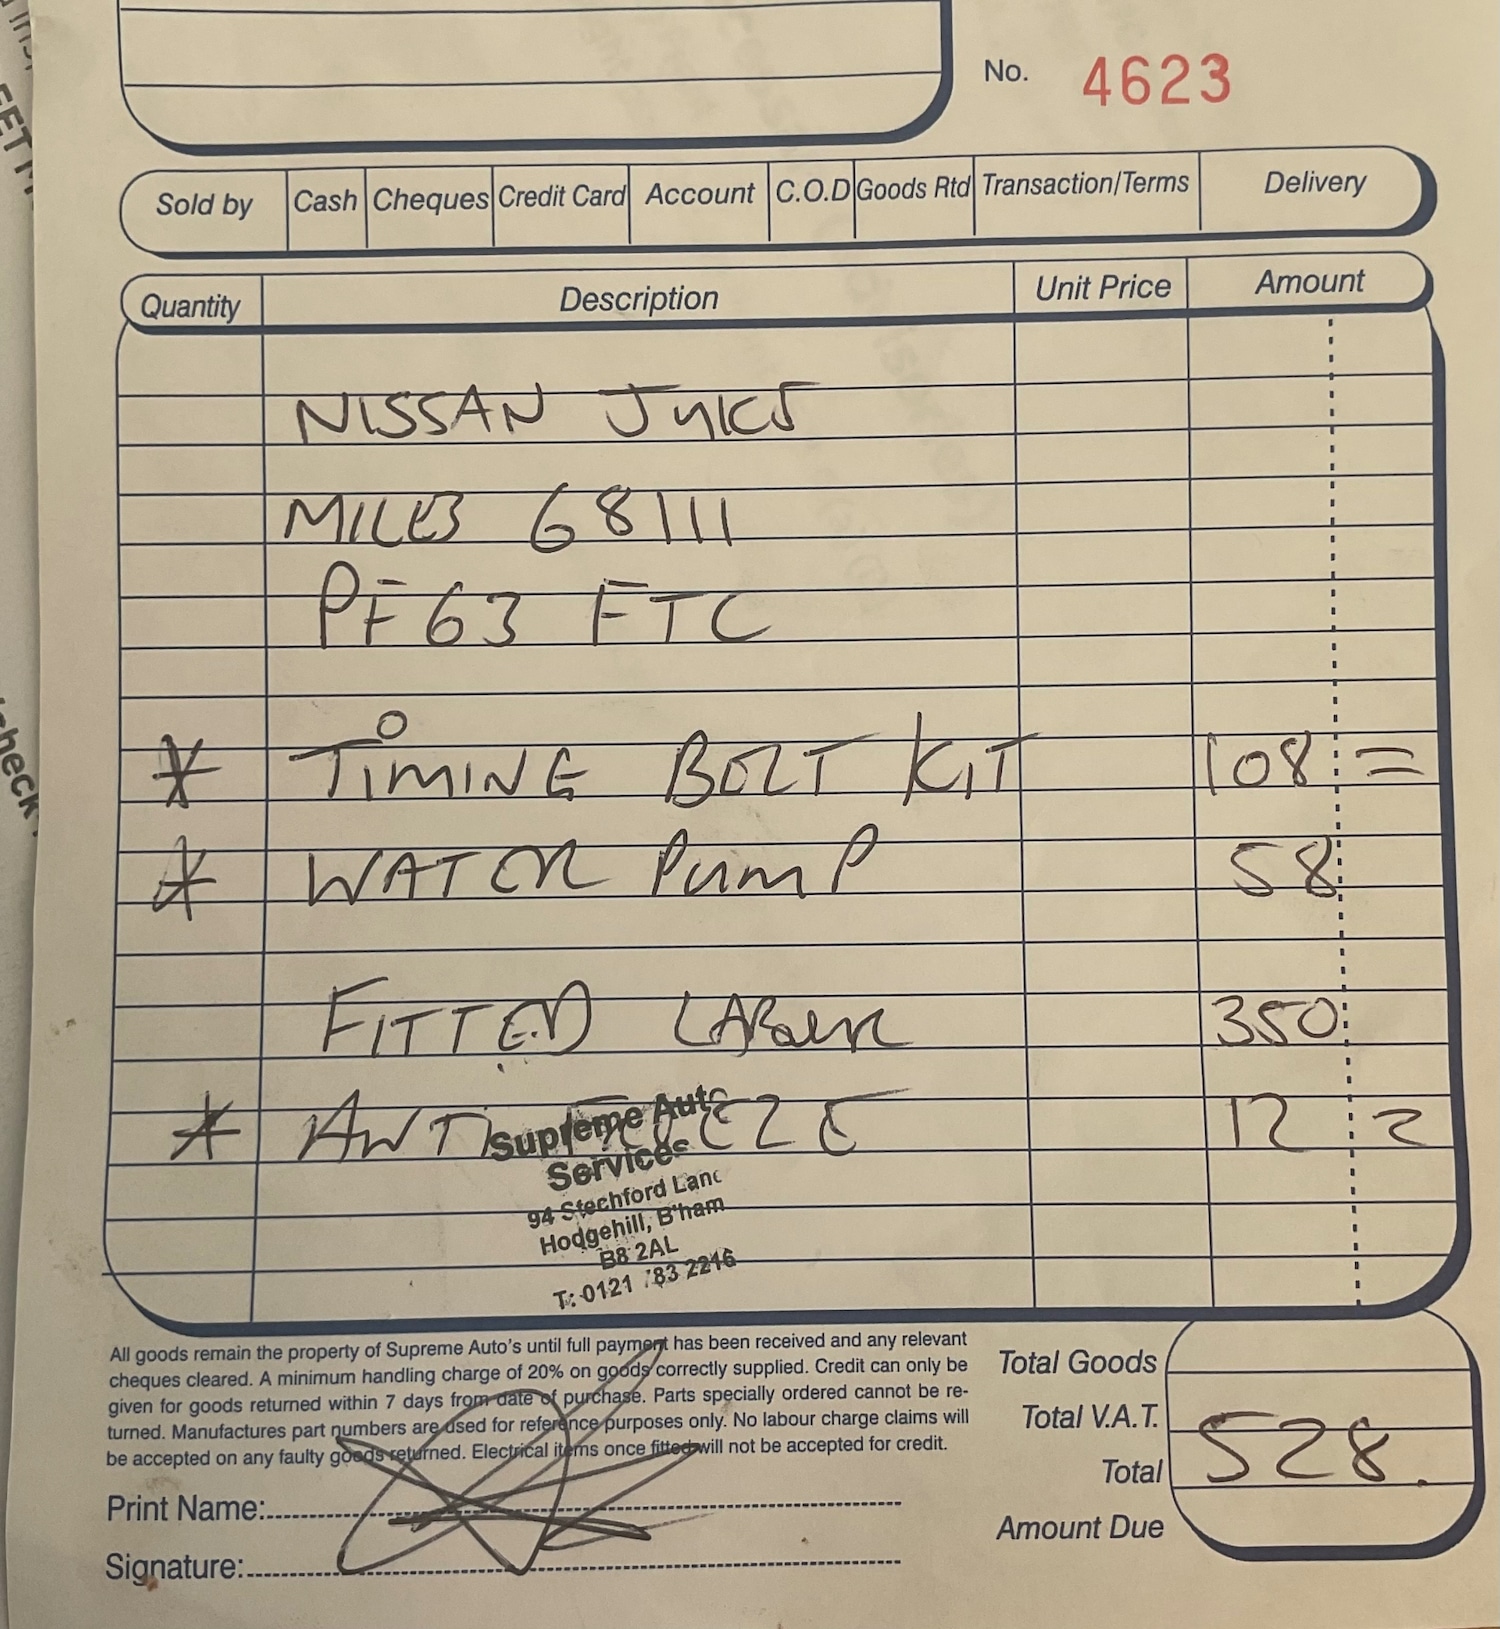 No. 4623
Sold by Cash Cheques Credit Card Account C.O.D Goods Rtd Transaction/Terms Delivery
Quantity Description Unit Price Amount
NISSAN JUKE
MILES 68111
PF63 FTC
* TIMING BELT KIT 108 =
* WATER PUMP 58
FITTED LABOUR 350
* ANTI FREEZE 12 =
Supreme Auto
Services
94 Stechford Lane
Hodgehill, B'ham
B8 2AL
T: 0121 783 2216
All goods remain the property of Supreme Auto's until full payment has been received and any relevant
cheques cleared. A minimum handling charge of 20% on goods correctly supplied. Credit can only be
given for goods returned within 7 days from date of purchase. Parts specially ordered cannot be re-
turned. Manufactures part numbers are used for reference purposes only. No labour charge claims will
be accepted on any faulty goods returned. Electrical items once fitted will not be accepted for credit.
Total Goods
Total V.A.T.
Total 528.
Amount Due
Print Name:
Signature: